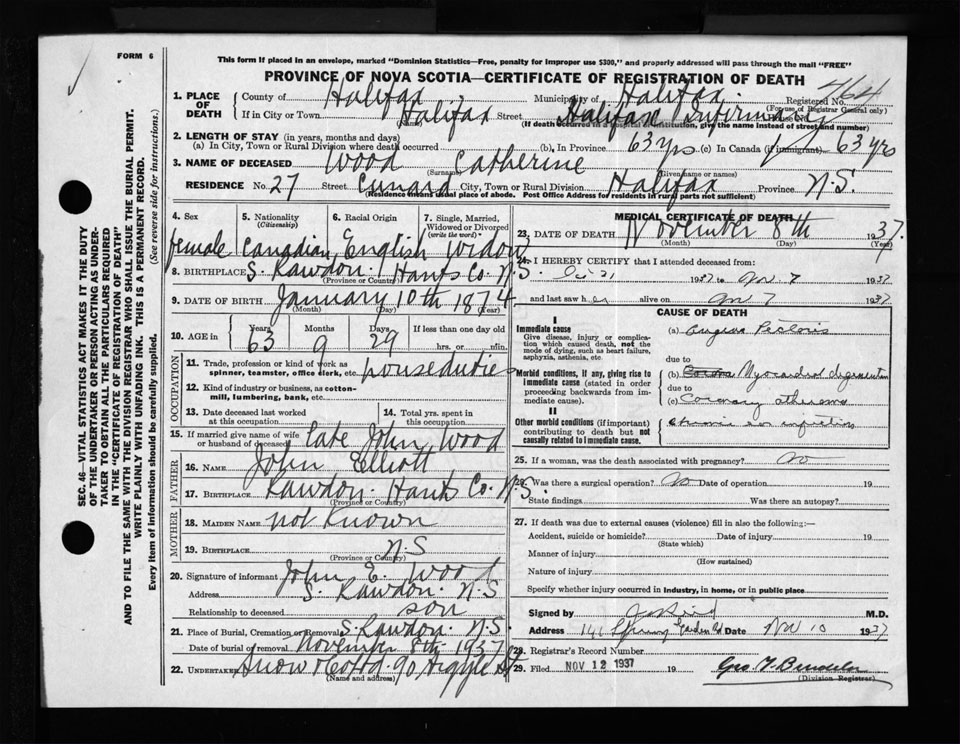 FORM 6
This form if placed in an envelope, marked "Dominion Statistics—Free, penalty for improper use $300," and properly addressed will pass through the mail "FREE"
PROVINCE OF NOVA SCOTIA—CERTIFICATE OF REGISTRATION OF DEATH
1. PLACE OF DEATH
County of Halifax Municipality of Halifax Registered No. 764
(For use of Registrar General only)
If in City or Town Halifax Street Halifax Infirmary House No.
(Name)
(If death occurred in a hospital or institution, give the name instead of street and number)
2. LENGTH OF STAY (in years, months and days)
(a) In City, Town or Rural Division where death occurred (b), In Province 63 yrs (c) In Canada (if immigrant) 63 yrs
3. NAME OF DECEASED Wood Catherine
(Surname) (Given name or names)
RESIDENCE No. 27 Street Cunard City, Town or Rural Division Halifax Province N.S.
(Residence means usual place of abode. Post Office Address for residents in rural parts not sufficient)
4. Sex
female
5. Nationality
(Citizenship)
Canadian
6. Racial Origin
English
7. Single, Married, Widowed or Divorced
(write the word)
widow
8. BIRTHPLACE S. Rawdon. Hants Co. N.S.
(Province or Country)
9. DATE OF BIRTH January 10th 1874
(Month) (Day) (Year)
10. AGE in Years Months Days If less than one day old
63 9 29 hrs. or min.
OCCUPATION
11. Trade, profession or kind of work as spinner, teamster, office clerk, etc. houseduties
12. Kind of industry or business, as cotton-mill, lumbering, bank, etc.
13. Date deceased last worked at this occupation
14. Total yrs. spent in this occupation
15. If married give name of wife or husband of deceased late John Wood
FATHER
16. NAME John Elliott
17. BIRTHPLACE Rawdon. Hants Co. N.S.
(Province or Country)
MOTHER
18. MAIDEN NAME not known
19. BIRTHPLACE N.S
(Province or Country)
20. Signature of informant John E. Wood
Address S. Rawdon. N.S
Relationship to deceased son
21. Place of Burial, Cremation or Removal S. Rawdon. N.S.
Date of burial or removal November 8th 1937
22. UNDERTAKER Snow & Co Ltd. 90 Argyle St
(Name and address)
MEDICAL CERTIFICATE OF DEATH
23. DATE OF DEATH November 8th 1937.
(Month) (Day) (Year)
24. I HEREBY CERTIFY that I attended deceased from:
1937 to Nov. 7 1937
and last saw her alive on Nov 7 1937
CAUSE OF DEATH
I
Immediate cause
Give disease, injury or complication which caused death, not the mode of dying, such as heart failure, asphyxia, asthenia, etc.
(a) Angina Pectoris
due to
Morbid conditions, if any, giving rise to immediate cause (stated in order proceeding backwards from immediate cause).
(b) Myocardial degeneration
due to
(c) Coronary atheroma
II
Other morbid conditions (if important) contributing to death but not causally related to immediate cause.
25. If a woman, was the death associated with pregnancy? no
26. Was there a surgical operation? No Date of operation 19
State findings Was there an autopsy?
27. If death was due to external causes (violence) fill in also the following:—
Accident, suicide or homicide? Date of injury 19
(State which)
Manner of injury
(How sustained)
Nature of injury
Specify whether injury occurred in industry, in home, or in public place
Signed by M.D.
Address 141 Spring Garden Rd Date Nov 10 1937
28. Registrar's Record Number
29. Filed NOV 12 1937 19
(Division Registrar)
SEC. 46—VITAL STATISTICS ACT MAKES IT THE DUTY
OF THE UNDERTAKER OR PERSON ACTING AS UNDERTAKER
TO OBTAIN ALL THE PARTICULARS REQUIRED
IN THE "CERTIFICATE OF REGISTRATION OF DEATH"
AND TO FILE THE SAME WITH THE DIVISION REGISTRAR WHO SHALL ISSUE THE BURIAL PERMIT.
WRITE PLAINLY WITH UNFADING INK. THIS IS A PERMANENT RECORD.
Every item of information should be carefully supplied. (See reverse side for instructions.)